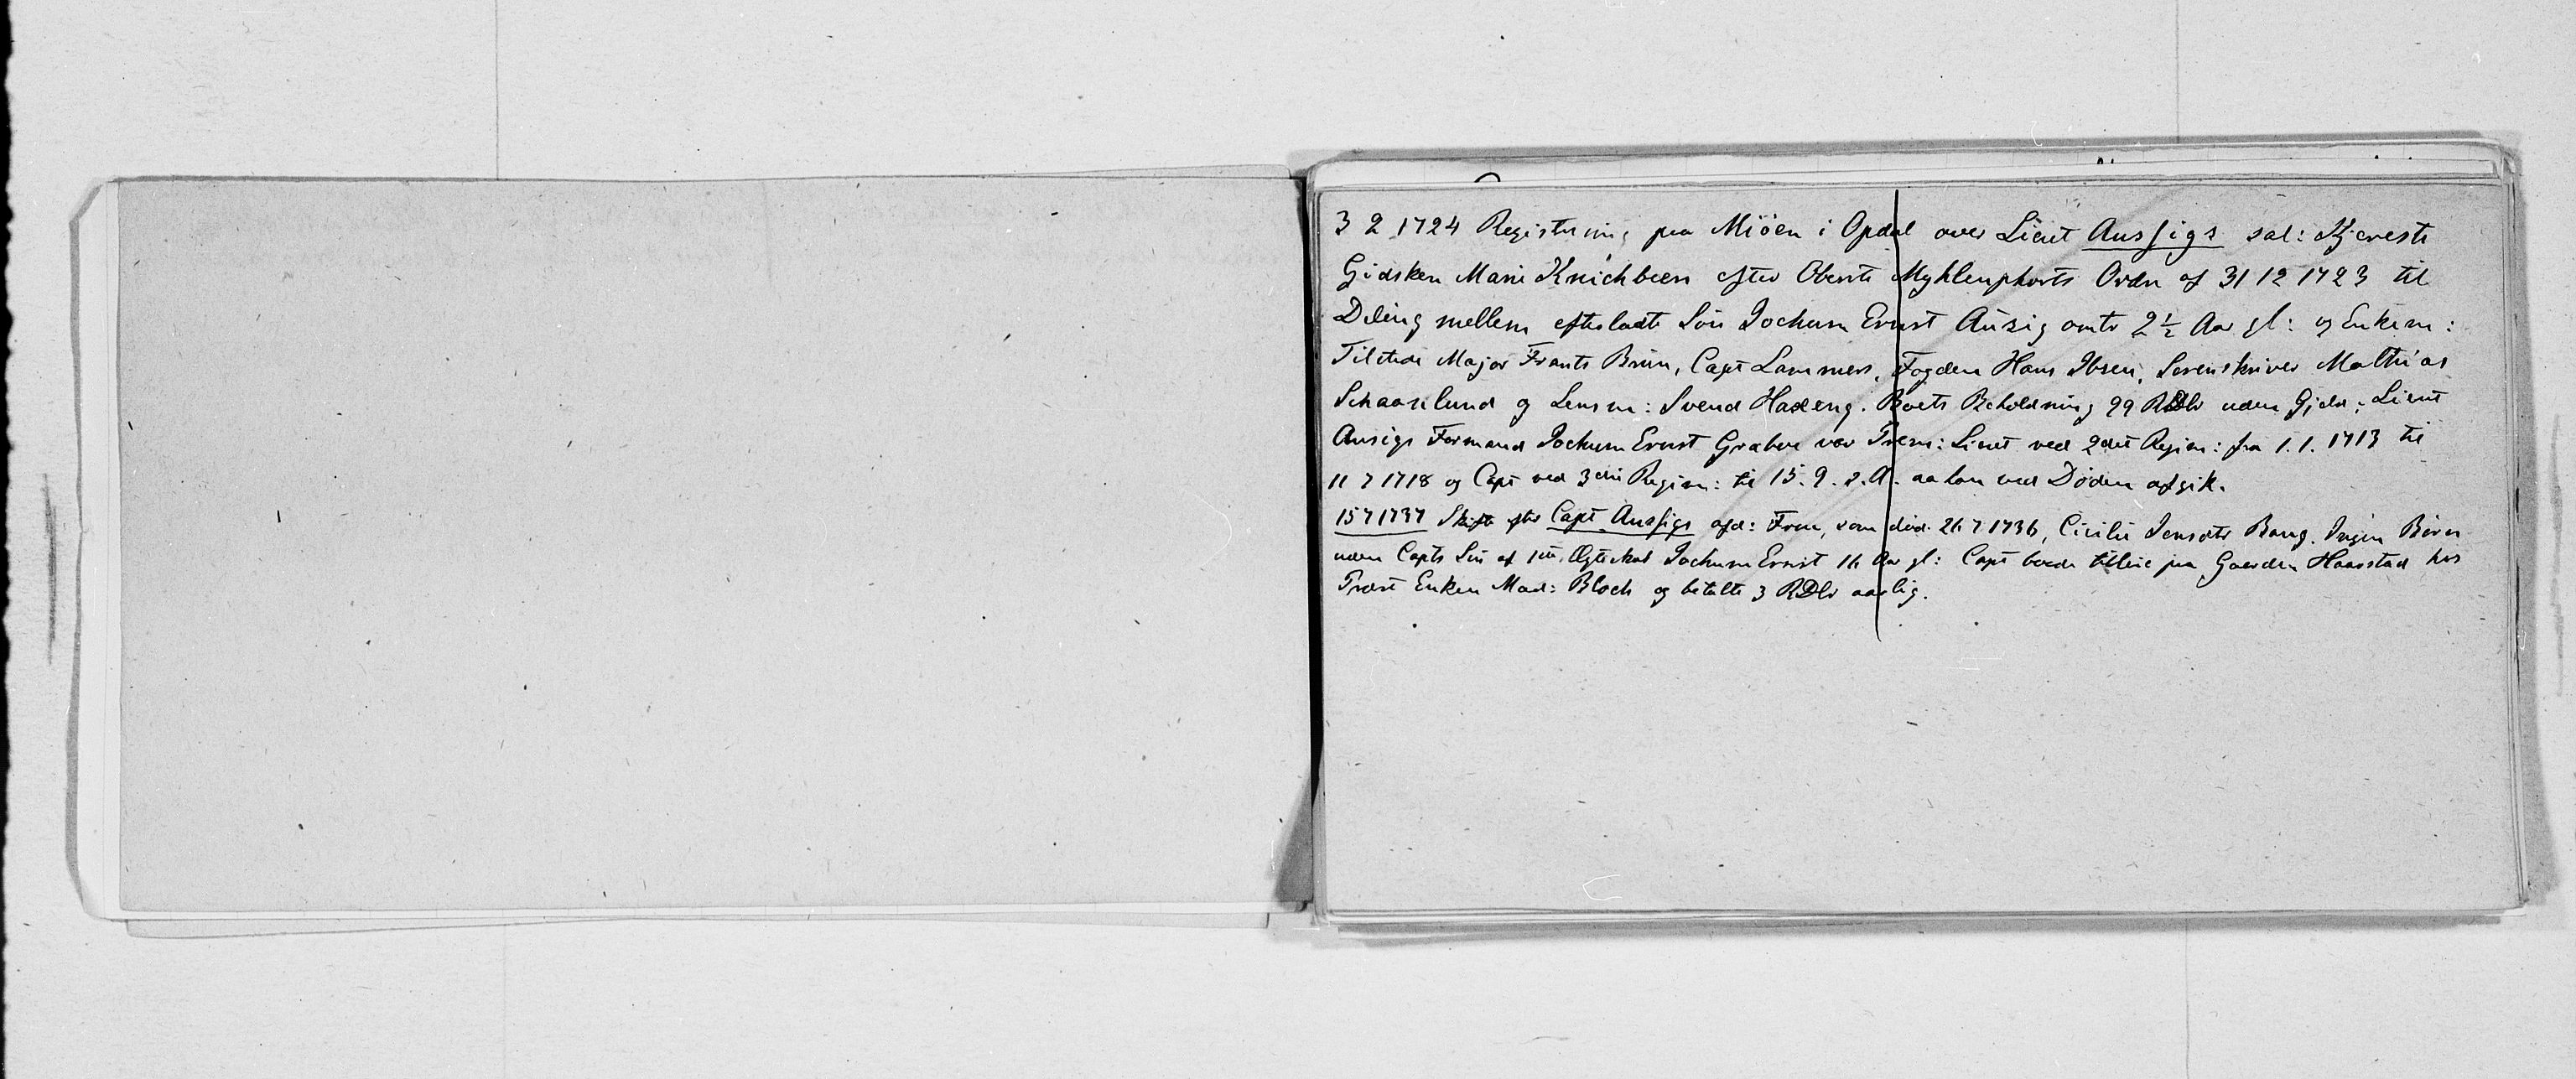 3 2 1724 Registrering paa Miöen i Opdal over Lieut Aussigs sal: Kjereste
Gidsken Marie Knichbeen efter Oberste Myhlenphorts Ordre af 31 12 1723 til
Deling mellem efterladte Sön Jochum Ernst Aüsig omtr 2½ Aar gl: og Enkem:
Tilstede Major Frants Brün, Capt Lammers, Fogden Hans Ibsen, Sorenskriver Mathias
Schaaslund og Lensm: Svend Haxeng. Boets Beholdning 99 RDlr uden Gjeld; Lieut
Ausigs Formand Jochum Ernst Grabow var Prem: Lieut ved 2det Regim: fra 1.1. 1713 til
11 7 1718 og Capt ved 3die Regim: til 15.9. s.A. aa han ved Døden afgik.
15 7 1737 Skifte efter Capt Aussigs afd: Frue, som död 26 7 1736, Cicilie Jensdtr Bang. Ingen Börn
uden Capts Sön af 1ste Ægteskab Jochum Ernst 16 Aar gl: Capt boede tilleie paa Gaarden Haarstad hos
Provst Enken Mad: Bloch og betalte 3 RDlr aarlig.